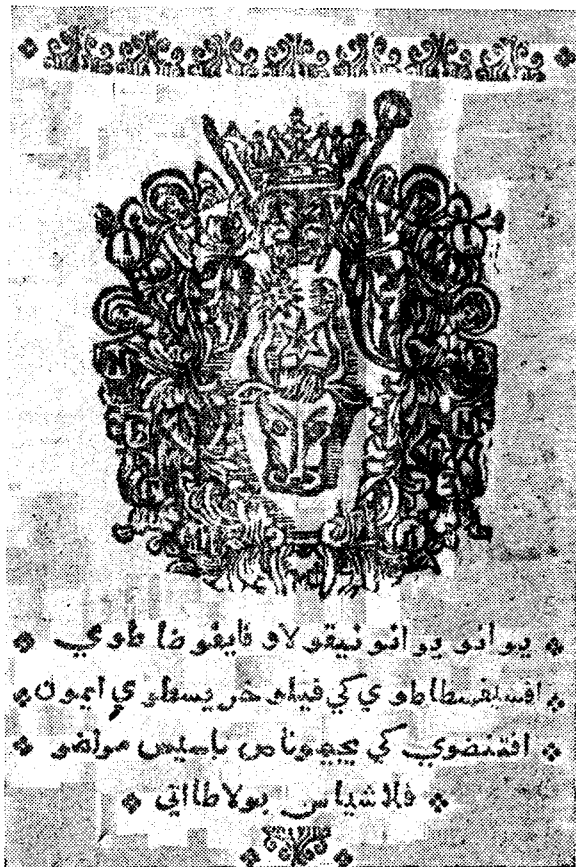 يوانو يوانو نيقولاو فايفوضا طوي
افسيفسطاطوي كي فيلو خريسطوي ايمون
افتنضوي كي يجيموناص باسيس مولضو
فلاشياس بولاطااتي